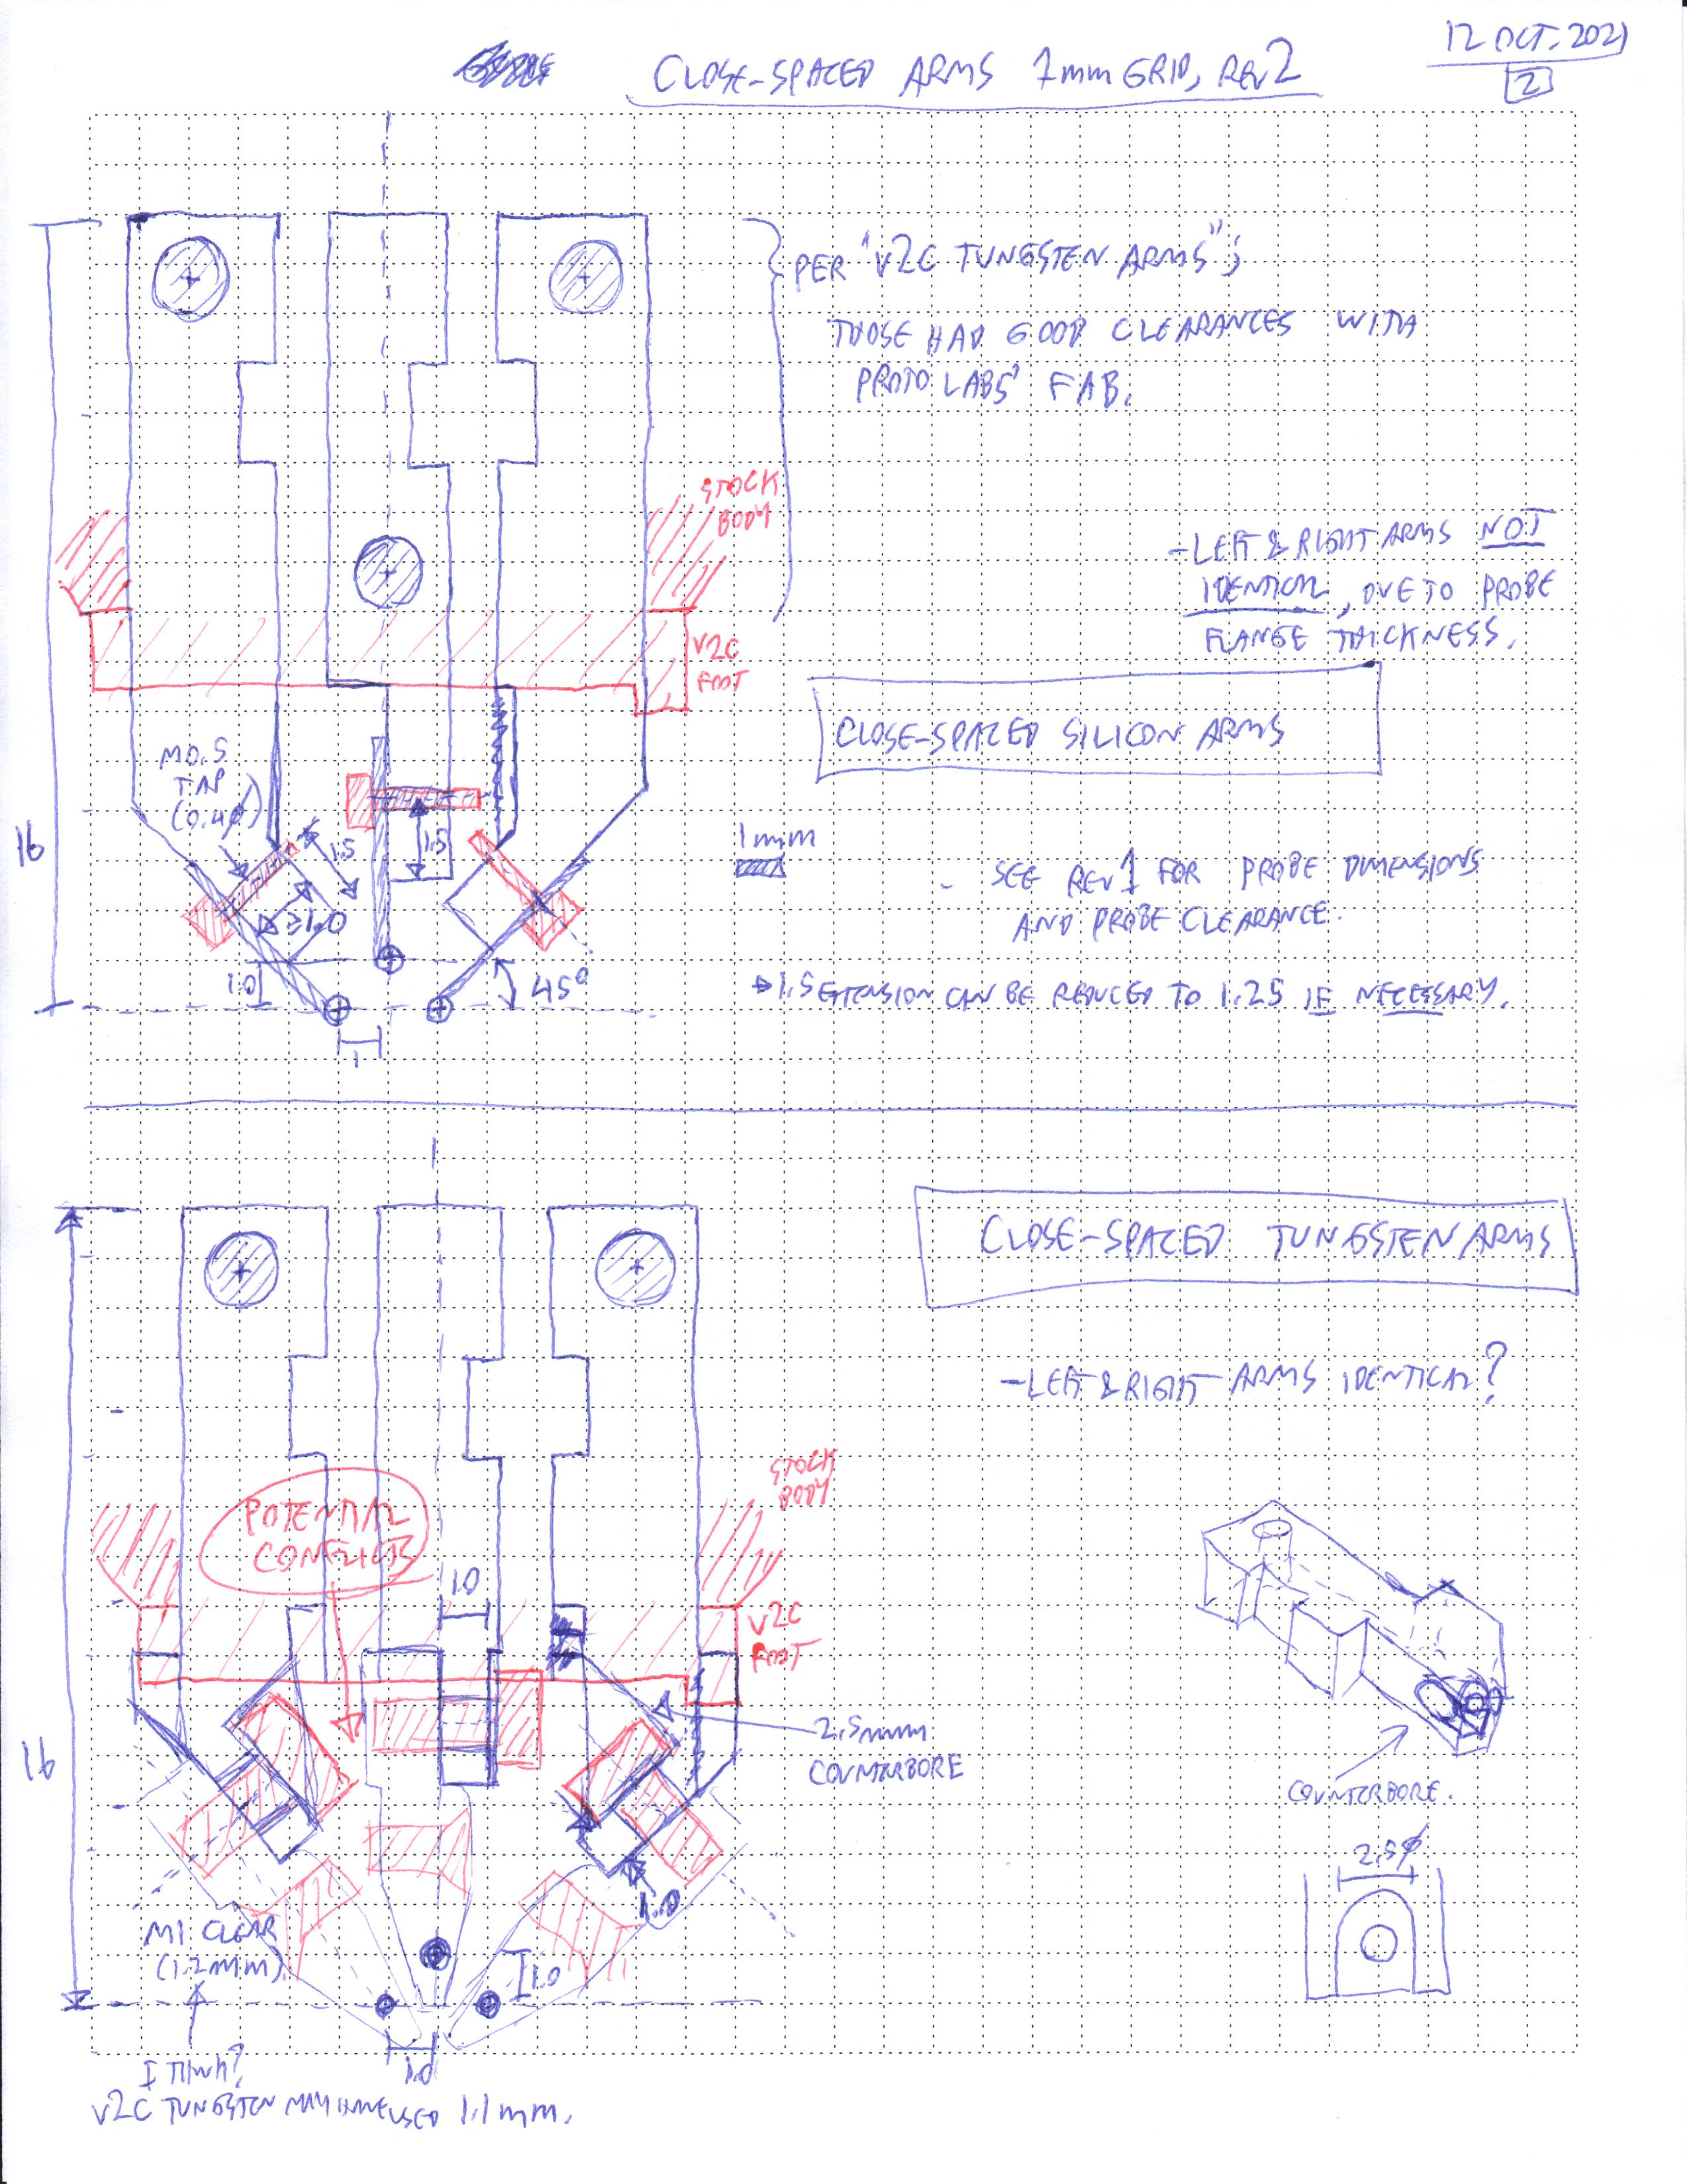 12 OCT. 2021
2
CLOSE-SPACED ARMS 1mm GRID, REV 2
PER "V2C TUNGSTEN ARMS";
THOSE HAD GOOD CLEARANCES WITH
PROTO LABS' FAB.
STOCK
BODY
- LEFT & RIGHT ARMS NOT
IDENTICAL, DUE TO PROBE
FLANGE THICKNESS.
V2C
FOOT
CLOSE-SPACED SILICON ARMS
M0.5
TAP
(0.4φ)
16
1.5
1.5
≥1.0
1mm
- SEE REV 1 FOR PROBE DIMENSIONS
AND PROBE CLEARANCE.
1.0
45°
→ 1.5 EXTENSION CAN BE REDUCED TO 1.25 IF NECESSARY.
1
CLOSE-SPACED TUNGSTEN ARMS
- LEFT & RIGHT ARMS IDENTICAL?
STOCK
BODY
POTENTIAL
CONFLICTS
1.0
V2C
FOOT
2.5mm
COUNTERBORE
16
COUNTERBORE.
2.5φ
1.0
M1 CLEAR
(1.2mm)
1.0
1.0
I THINK?
V2C TUNGSTEN MAY HAVE USED 1.1mm.